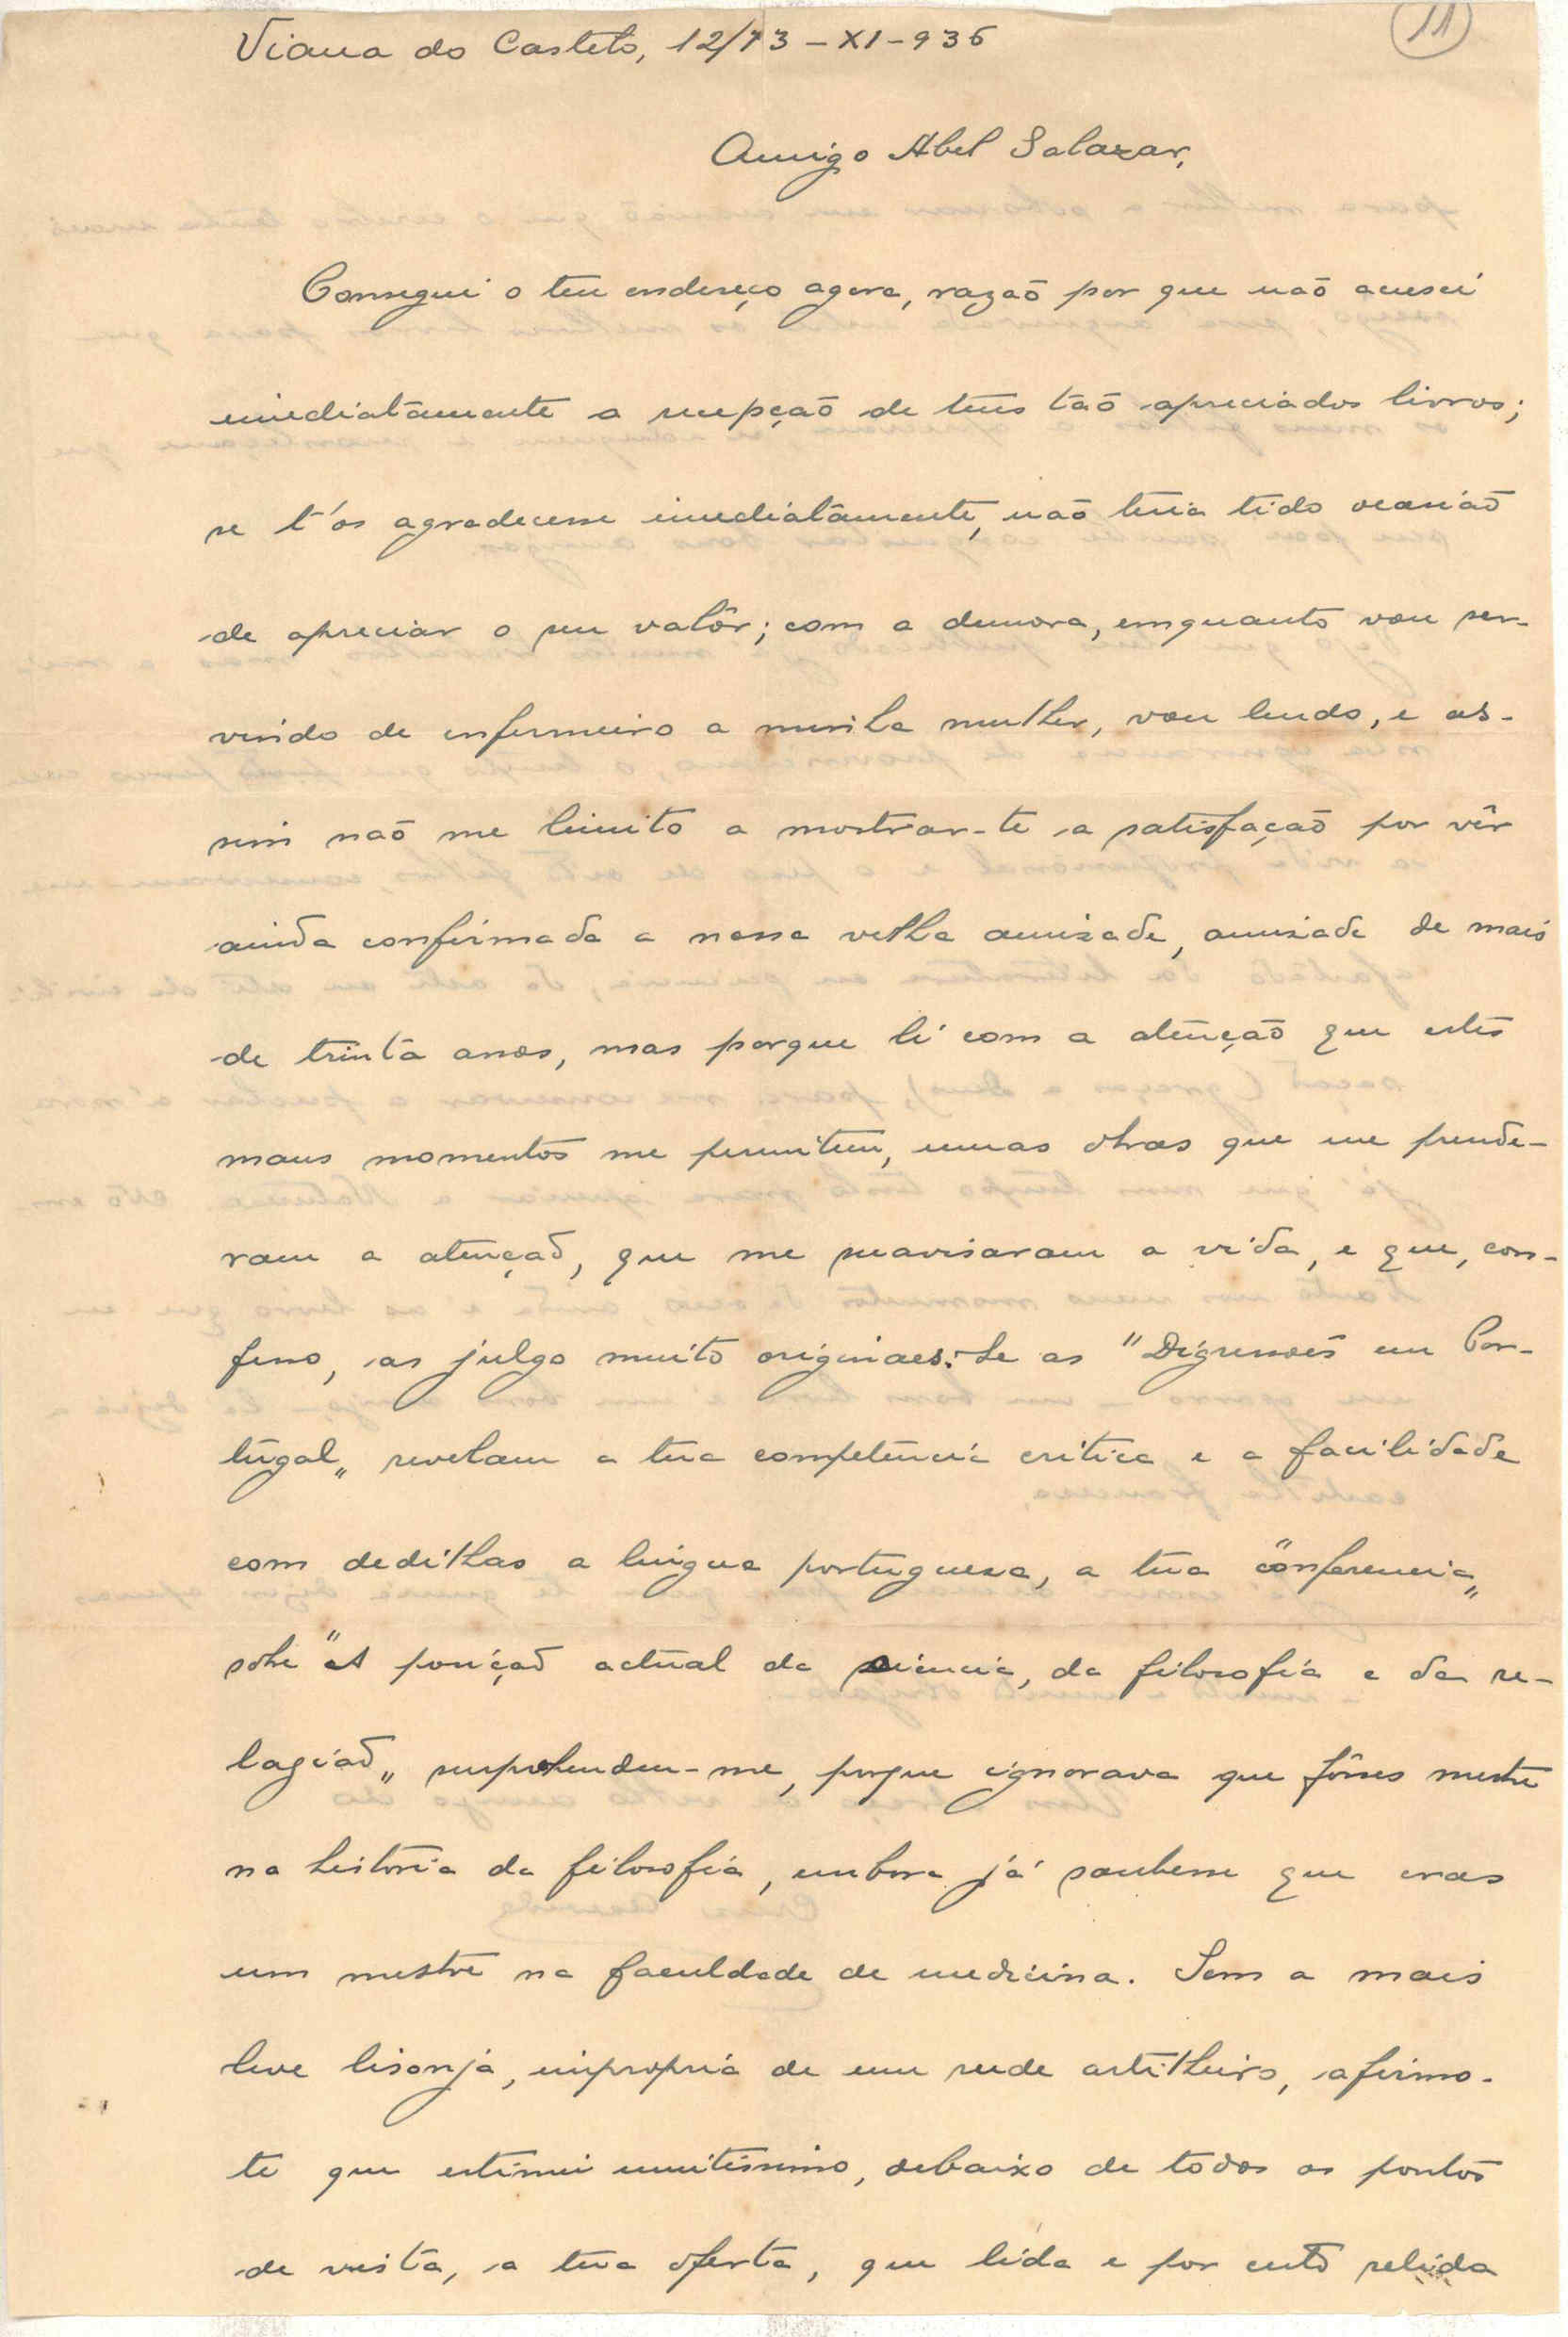 11
Viana do Castelo, 12/13-XI-936
Amigo Abel Salazar,
Consegui o teu endereço agora, razaõ por que naõ acusei
imediatamente a recepçaõ de teus taõ apreciados livros;
se t'os agradecesse imediatamente, naõ teria tido ocasiaõ
de apreciar o seu valôr; com a demora, emquanto vou ser-
vindo de enfermeiro a minha mulher, vou lendo, e as-
sim naõ me limito a mostrar-te a satisfaçaõ por vêr
ainda confirmada a nossa velha amizade, amizade de mais
de trinta anos, mas porque li com a atençaõ que estes
maus momentos me permitem, umas obras que me prende-
ram a atençaõ, que me suavisaram a vida, e que, con-
fesso, as julgo muito originaes: Se as "Digressoẽs em Por-
tugal„ revelam a tua competencia critica e a facilidade
com dedilhas a lingua portuguesa, a tua "conferencia„
sobre "A posiçaõ actual da sciencia, da filosofia e da re-
lagiaõ„ surprehendeu-me, porque ignorava que fôsses mestre
na historia da filosofia, embora já soubesse que eras
um mestre na faculdade de medicina. Sem a mais
leve lisonja, impropria de um rude artilheiro, afirmo-
te que estimei muitissimo, debaixo de todos os pontos
de vista, a tua oferta, que lida e por certo relida